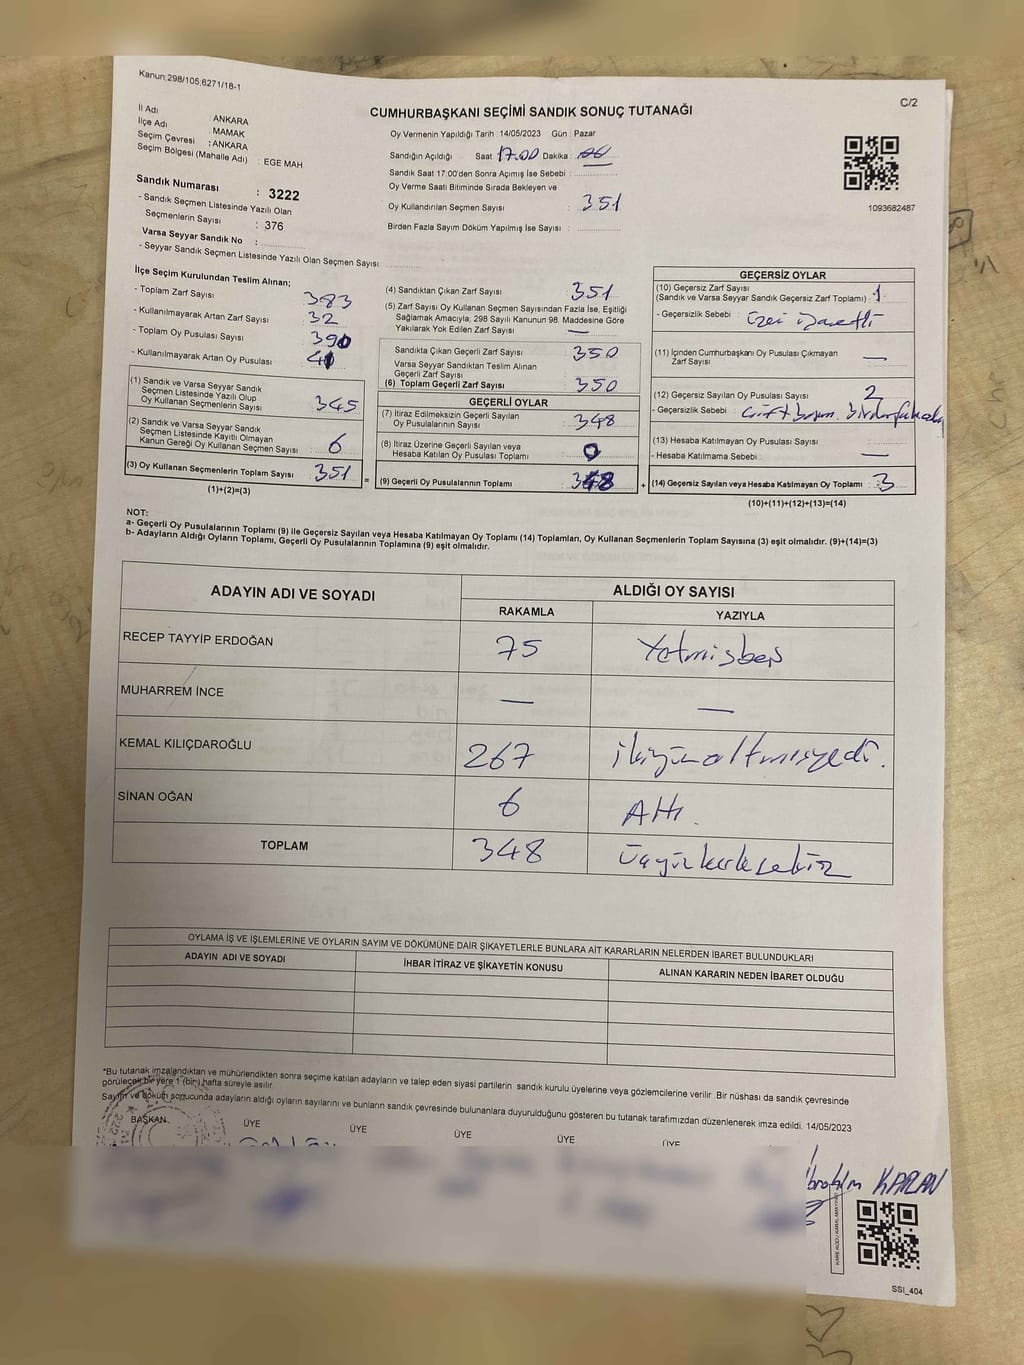 Kanun:298/105;6271/18-1
C/2
CUMHURBAŞKANI SEÇİMİ SANDIK SONUÇ TUTANAĞI
İl Adı ANKARA
İlçe Adı : MAMAK
Seçim Çevresi : ANKARA
Seçim Bölgesi (Mahalle Adı) : EGE MAH
Sandık Numarası : 3222
- Sandık Seçmen Listesinde Yazılı Olan
Seçmenlerin Sayısı : 376
Varsa Seyyar Sandık No :
- Seyyar Sandık Seçmen Listesinde Yazılı Olan Seçmen Sayısı:
Oy Vermenin Yapıldığı Tarih : 14/05/2023 Gün : Pazar
Sandığın Açıldığı Saat 17.00 Dakika : 00
Sandık Saat 17:00'den Sonra Açımış İse Sebebi :
Oy Verme Saati Bitiminde Sırada Bekleyen ve
Oy Kullandırılan Seçmen Sayısı : 351
Birden Fazla Sayım Döküm Yapılmış İse Sayısı :
1093682487
İlçe Seçim Kurulundan Teslim Alınan;
- Toplam Zarf Sayısı 383
- Kullanılmayarak Artan Zarf Sayısı 32
- Toplam Oy Pusulası Sayısı 390
- Kullanılmayarak Artan Oy Pusulası
(1) Sandık ve Varsa Seyyar Sandık
Seçmen Listesinde Yazılı Olup
Oy Kullanan Seçmenlerin Sayısı 345
(2) Sandık ve Varsa Seyyar Sandık
Seçmen Listesinde Kayıtlı Olmayan
Kanun Gereği Oy Kullanan Seçmen Sayısı 6
(3) Oy Kullanan Seçmenlerin Toplam Sayısı 351 =
(1)+(2)=(3)
(4) Sandıktan Çıkan Zarf Sayısı 351
(5) Zarf Sayısı Oy Kullanan Seçmen Sayısından Fazla İse, Eşitliği
Sağlamak Amacıyla, 298 Sayılı Kanunun 98. Maddesine Göre
Yakılarak Yok Edilen Zarf Sayısı —
Sandıkta Çıkan Geçerli Zarf Sayısı 350
Varsa Seyyar Sandıktan Teslim Alınan
Geçerli Zarf Sayısı
(6) Toplam Geçerli Zarf Sayısı 350
GEÇERLİ OYLAR
(7) İtiraz Edilmeksizin Geçerli Sayılan
Oy Pusulalarının Sayısı 348
(8) İtiraz Üzerine Geçerli Sayılan veya
Hesaba Katılan Oy Pusulası Toplamı 0
(9) Geçerli Oy Pusulalarının Toplamı 348 +
GEÇERSİZ OYLAR
(10) Geçersiz Zarf Sayısı
(Sandık ve Varsa Seyyar Sandık Geçersiz Zarf Toplamı) : 1
- Geçersizlik Sebebi : üzeri işaretli
(11) İçinden Cumhurbaşkanı Oy Pusulası Çıkmayan
Zarf Sayısı —
(12) Geçersiz Sayılan Oy Pusulası Sayısı 2
- Geçersizlik Sebebi :
(13) Hesaba Katılmayan Oy Pusulası Sayısı :
- Hesaba Katılmama Sebebi : —
(14) Geçersiz Sayılan veya Hesaba Katılmayan Oy Toplamı : 3
(10)+(11)+(12)+(13)=(14)
NOT:
a- Geçerli Oy Pusulalarının Toplamı (9) ile Geçersiz Sayılan veya Hesaba Katılmayan Oy Toplamı (14) Toplamları, Oy Kullanan Seçmenlerin Toplam Sayısına (3) eşit olmalıdır. (9)+(14)=(3)
b- Adayların Aldığı Oyların Toplamı, Geçerli Oy Pusulalarının Toplamına (9) eşit olmalıdır.
ADAYIN ADI VE SOYADI ALDIĞI OY SAYISI
RAKAMLA YAZIYLA
RECEP TAYYİP ERDOĞAN 75 Yetmişbeş
MUHARREM İNCE — —
KEMAL KILIÇDAROĞLU 267 ikiyüzaltmışyedi.
SİNAN OĞAN 6 Altı.
TOPLAM 348 üçyüzkırksekiz
OYLAMA İŞ VE İŞLEMLERİNE VE OYLARIN SAYIM VE DÖKÜMÜNE DAİR ŞİKAYETLERLE BUNLARA AİT KARARLARIN NELERDEN İBARET BULUNDUKLARI
ADAYIN ADI VE SOYADI İHBAR İTİRAZ VE ŞİKAYETİN KONUSU ALINAN KARARIN NEDEN İBARET OLDUĞU
*Bu tutanak imzalandıktan ve mühürlendikten sonra seçime katılan adayların ve talep eden siyasi partilerin sandık kurulu üyelerine veya gözlemcilerine verilir .Bir nüshası da sandık çevresinde
görülecek bir yere 1 (bir) hafta süreyle asılır.
Sayım ve döküm sonucunda adayların aldığı oyların sayılarını ve bunların sandık çevresinde bulunanlara duyurulduğunu gösteren bu tutanak tarafımızdan düzenlenerek imza edildi. 14/05/2023
BAŞKAN ÜYE ÜYE ÜYE ÜYE ÜYE
İbrahim KAPLAN
SSI_404